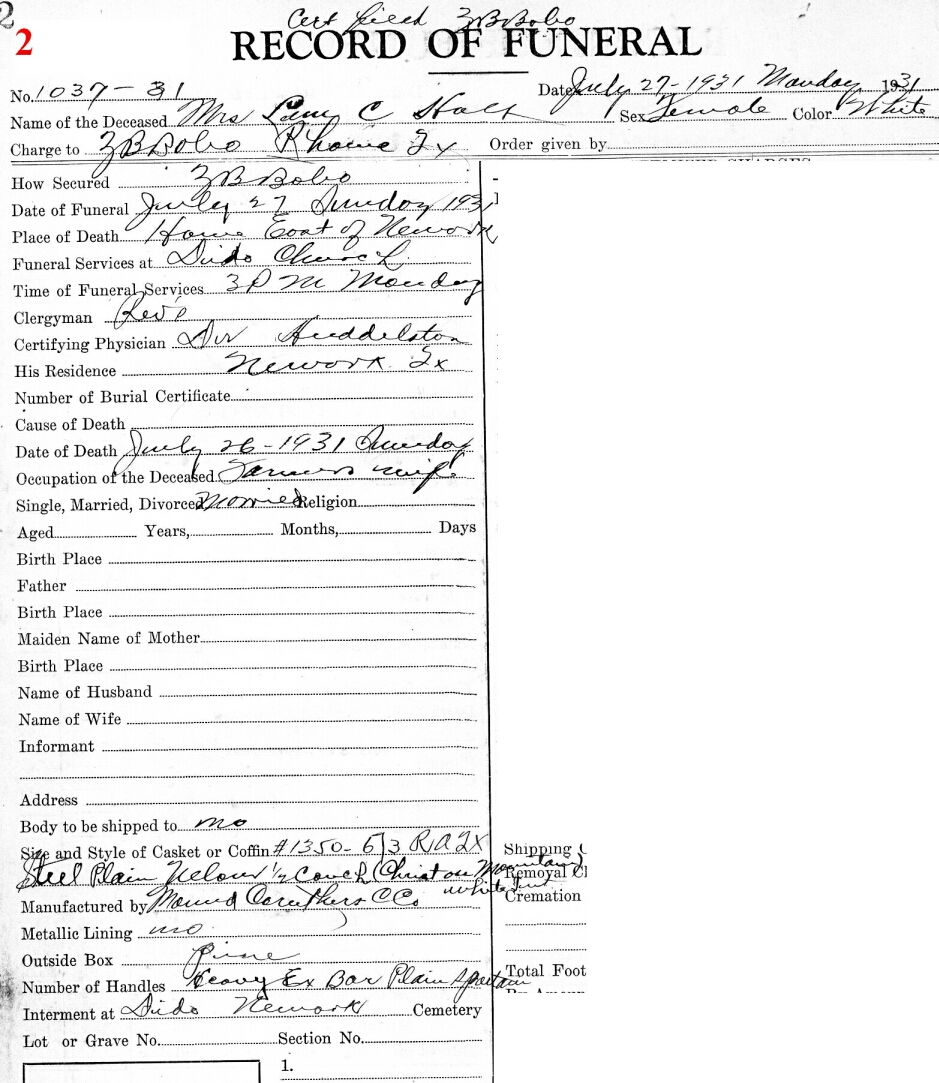 2
2
Cert filed ZBBobo
RECORD OF FUNERAL
No. 1037-31 Date July 27-1931 Monday 1931
Name of the Deceased Mrs C Sex Female Color White
Charge to ZBBobo Rhome Tx Order given by
How Secured ZBBobo
Date of Funeral July 27 Sunday 1931
Place of Death Home East of Newark
Funeral Services at Dido Church
Time of Funeral Services 3PM Monday
Clergyman Rev
Certifying Physician Dr Huddelston
His Residence Newark Tx
Number of Burial Certificate
Cause of Death
Date of Death July 26-1931 Sunday
Occupation of the Deceased Farmers wife
Single, Married, Divorced Married Religion
Aged Years, Months, Days
Birth Place
Father
Birth Place
Maiden Name of Mother
Birth Place
Name of Husband
Name of Wife
Informant
Address
Body to be shipped to no
Size and Style of Casket or Coffin #1350- 6/3 Shipping
Steel Plain 1/2 Couch (Christ on Mountain) Removal Cl
white
Manufactured by Mound Caruthers C Co Cremation
Metallic Lining no
Outside Box Pine
Total Foot
Number of Handles Heavy Ex Bar Plain
Interment at Dido Newark Cemetery
Lot or Grave No. Section No.
1.